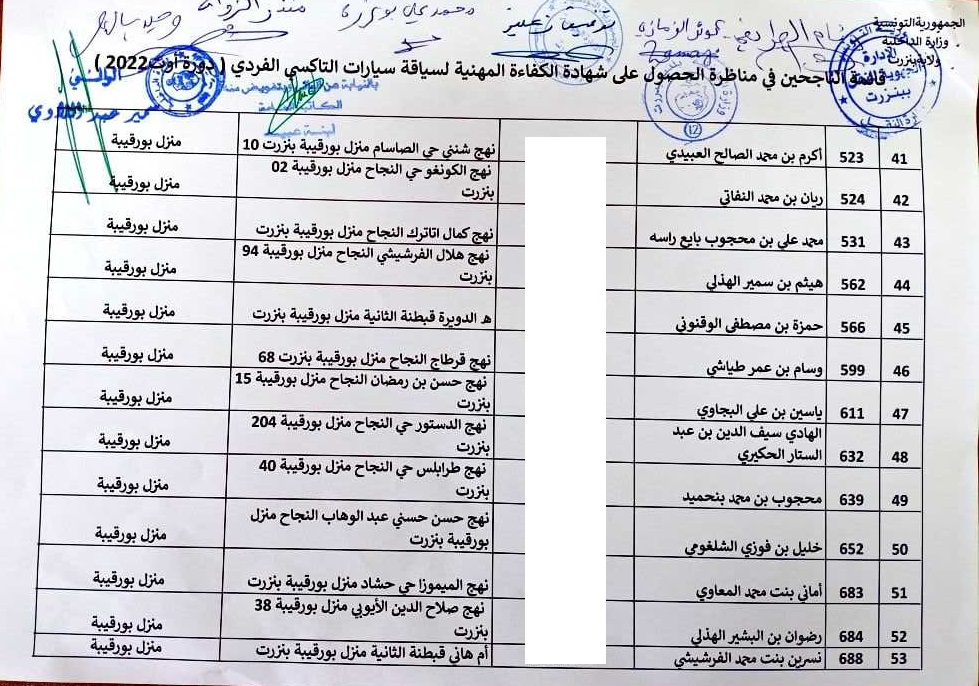 الجمهورية التونسية
وزارة الداخلية
ولاية بنزرت
قائمة الناجحين في مناظرة الحصول على شهادة الكفاءة المهنية لسياقة سيارات التاكسي الفردي ( دورة أوت 2022 )
الوالي
سمير عبد اللاوي
41 523 أكرم بن محمد الصالح العبيدي نهج شنني حي الصاسام منزل بورقيبة بنزرت 10 منزل بورقيبة
42 524 ريان بن محمد النفاتي نهج الكونغو حي النجاح منزل بورقيبة 02
بنزرت منزل بورقيبة
43 531 محمد علي بن محجوب بايع راسه نهج كمال اتاترك النجاح منزل بورقيبة بنزرت منزل بورقيبة
44 562 هيثم بن سمير الهذلي نهج هلال الفرشيشي النجاح منزل بورقيبة 94
بنزرت منزل بورقيبة
45 566 حمزة بن مصطفى الوقنوني هـ الدويرة قبطنة الثانية منزل بورقيبة بنزرت منزل بورقيبة
46 599 وسام بن عمر طياشي نهج قرطاج النجاح منزل بورقيبة بنزرت 68 منزل بورقيبة
47 611 ياسين بن علي البجاوي نهج حسن بن رمضان النجاح منزل بورقيبة 15
بنزرت منزل بورقيبة
48 632 الهادي سيف الدين بن عبد
الستار الحكيري نهج الدستور حي النجاح منزل بورقيبة 204
بنزرت منزل بورقيبة
49 639 محجوب بن محمد بنحميد نهج طرابلس حي النجاح منزل بورقيبة 40
بنزرت منزل بورقيبة
50 652 خليل بن فوزي الشلغومي نهج حسن حسني عبد الوهاب النجاح منزل
بورقيبة بنزرت منزل بورقيبة
51 683 أماني بنت محمد المعاوي نهج الميموزا حي حشاد منزل بورقيبة بنزرت منزل بورقيبة
52 684 رضوان بن البشير الهذلي نهج صلاح الدين الأيوبي منزل بورقيبة 38
بنزرت منزل بورقيبة
53 688 نسرين بنت محمد الفرشيشي أم هاني قبطنة الثانية منزل بورقيبة بنزرت منزل بورقيبة